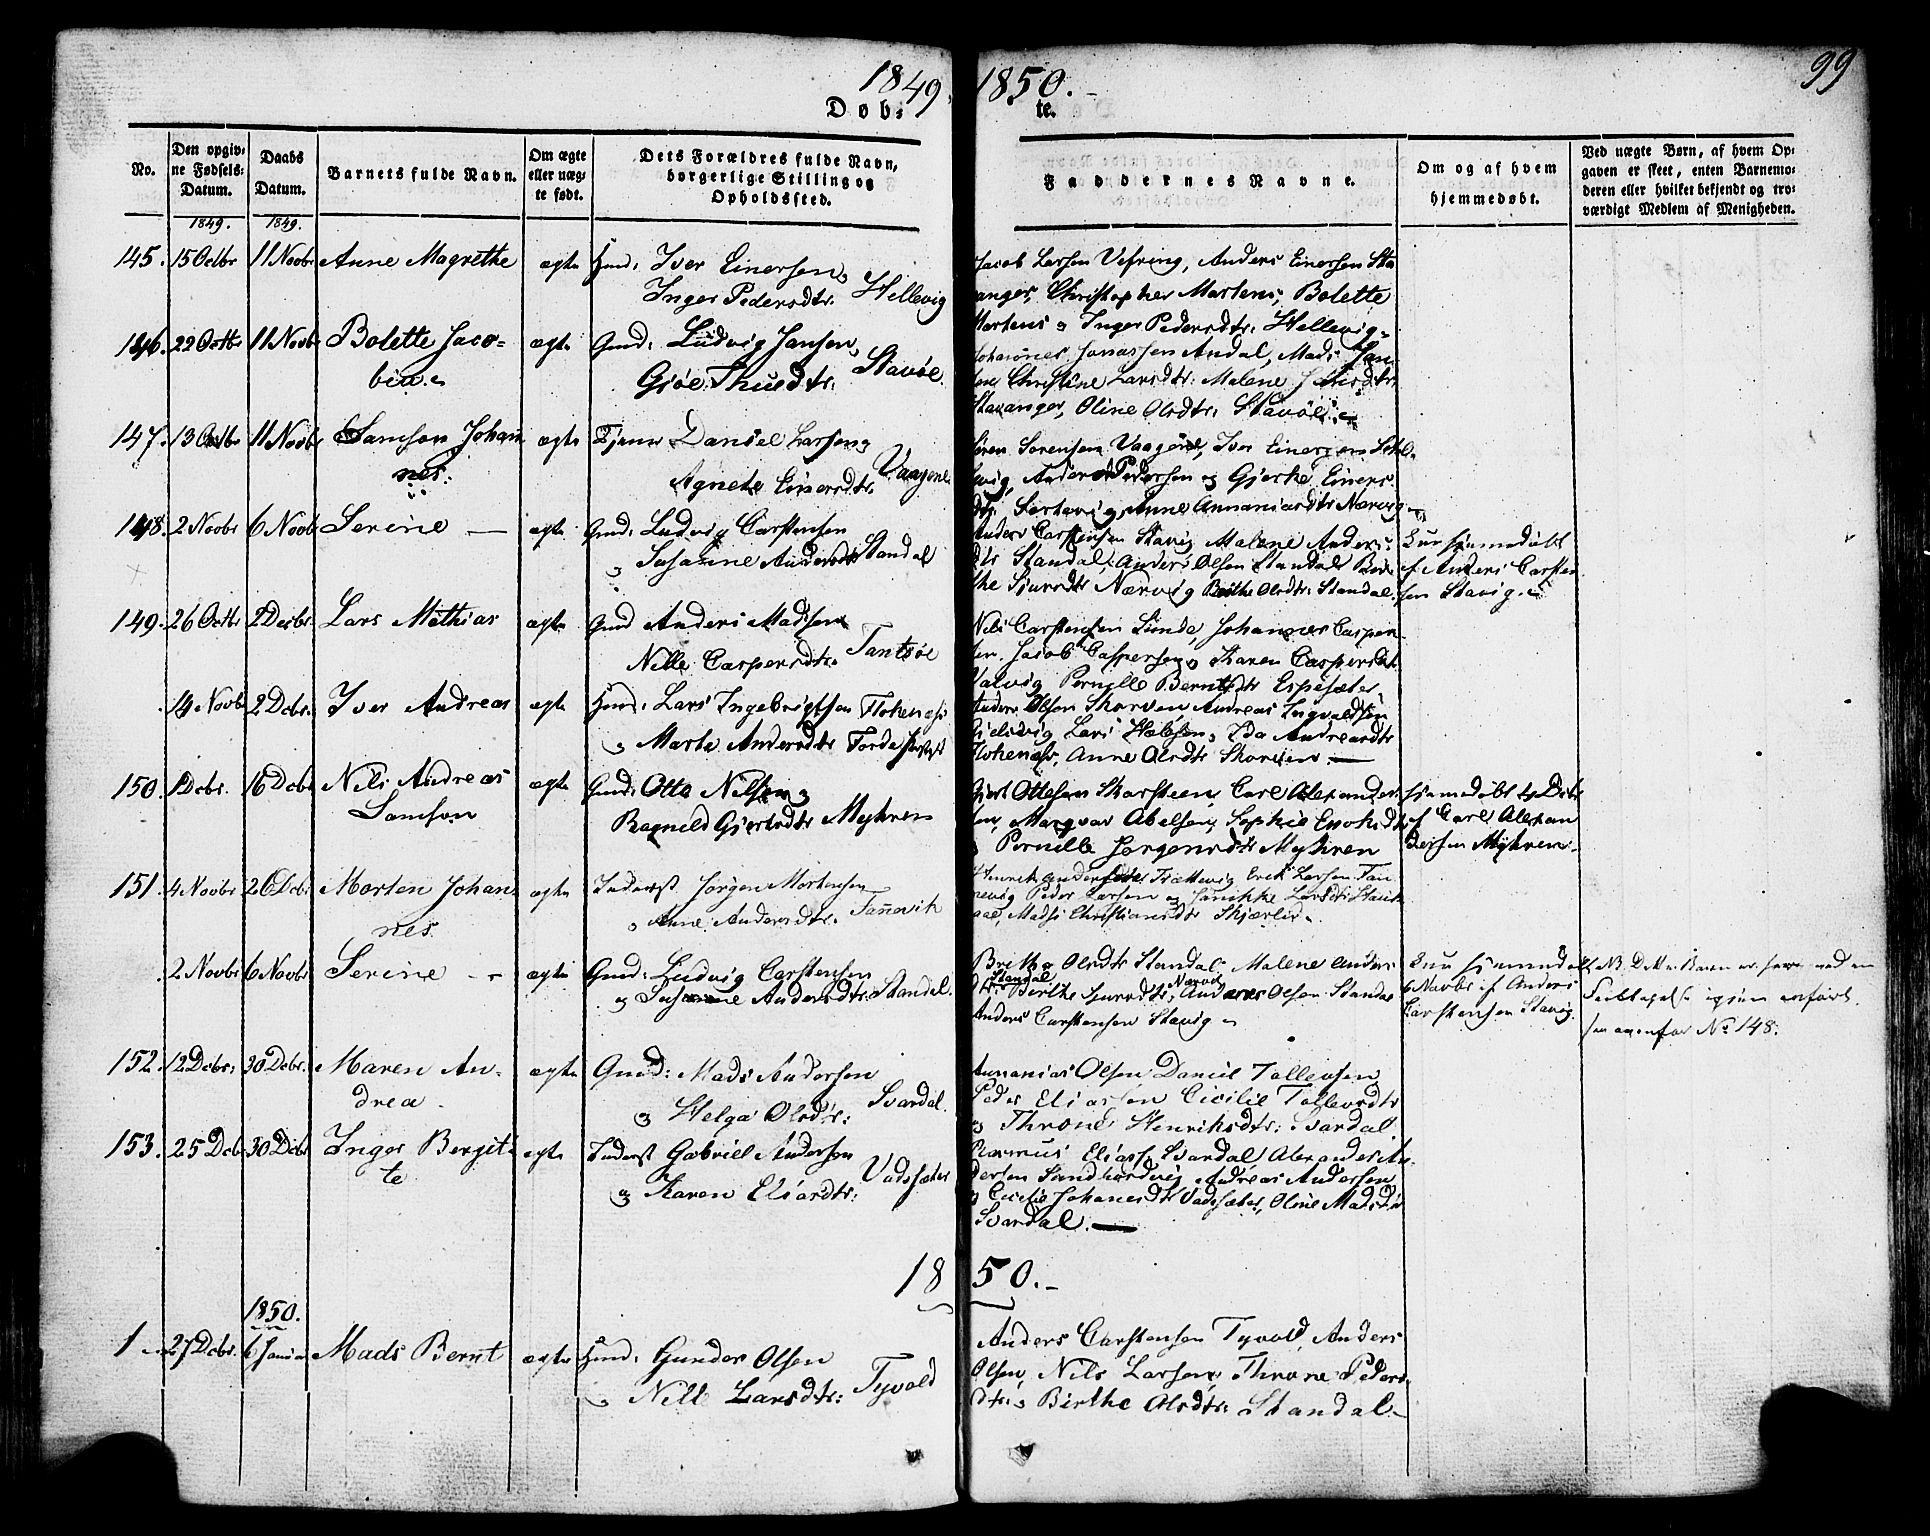 1849. 1850. 99
Døb: te.
No.
Den opgiv-
ne Fødsels-
Datum.
Daabs
Datum.
Barnets fulde Navn.
Om ægte
eller uæg-
te født.
Dets Forældres fulde Navn,
borgerlige Stilling og
Opholdssted.
Faddernes Navne.
Om og af hvem
hjemmedøbt.
Ved uægte Børn, af hvem Op-
gaven er skeet, enten Barnemo-
deren eller hvilket bekjendt og tro-
værdigt Medlem af Menigheden.
1849. 1849.
145. 15 Octbr 11 Novbr Anne Magrethe ægte Huusd: Iver Einersen,
Inger Pedersdtr. Hellevig
Jacob Larsen Vefring, Anders Einersen Sta
anger, Christopher Martens, Bolette
Martens o Inger Pedersdtr: Hellevig
146. 22 Octbr 11 Novbr Bolette Jaco-
bin
ægte Gmd: Ludvig Jansen,
Gjøe Thuesdtr. Stavøe.
Johannes Jonassen Andal, Mads Jan-
sen Christine Larsdtr: Malene
Stavanger, Oline Olsdtr: Stavøe
147. 13 Octbr 11 Novbr Samson Johan
nes.
ægte Tjener Daniel Larsen,
Agnete Einersdtr. Vaagene
Søren Sørensen Vaagene, Iver Einersen Hel-
evig, Anders Pedersen og Gjerke Einers
dtr: Anne Annaniasdtr Nærvig
148. 2 Novbr 6 Novbr Serine ægte Gmd: Ludvig Carstensen
o Susanne Andersdtr Standal
Anders Carstensen Stavig Malene Anders-
dtr Standal, Anders Olsen Standal Bir
the Sjursdtr Nærvig Birthe Olsdtr: Standal.
Er hjemmedøbt
af Anders Carsten
sen Stavig.
149. 26 Octbr 2 Decbr. Lars Mathias ægte Gmd Anders Madsen
Nille Caspersdtr. Tantsøe
Nils Carstensen Sunde, Johannes Casper
sen. Jacob Caspersen, Karen Caspersdtr
Valvig Pernille Berntsdtr Espesæter
14 Novbr 2 Dcbr. Iver Andreas ægte Huusd: Lars Ingebrigtsen Flokenæs
o Marta Andersdtr Førde
Anders Olsen Skorven Andreas Ingvaldsen
Gjelsvig Lars Ida Andreasdtr
Flokenæs, Anne Olsdtr Skorven
150. 1 Dcbr. 16 Dcbr Nils Andreas
Samson
ægte Gmd: Otto Nilsen,
Ragnild Gjertsdtr Myhren
Gjert Ottesen Skorsteen, Carl Alexander
sen, Marqvar Abelsen, Sophie Enokdtr
o Pernille Jørgensdtr Myhren
hjemmedøbt 4 Dcbr
af Carl Alexan
dersen Myhren.
151. 4 Novbr 26 Dcbr Morten Johan-
nes.
ægte Inderst Jørgen Mortensen
o Anne Andersdtr. Tannevik
Henrik Andersen Trættevig Erik Larsen Tan
nevig Peder Larsen og Jannikke Larsdtr Stavik
dal, Madsi Christiansdtr Skjærlie.
2 Novbr 6 Novbr Serine ægte Gmd: Ludvig Carstensen
og Susanne Andersdtr. Standal.
Brithe Olsdtr Standal, Malene Anders
dtr Standal Birthe Sjursdtr, Nærvig Anders Olsen Standal
Anders Carstensen Stavig
Er hjemmedøbt
6 Novbr af Anders
Carstensen Stavig.
NB. Dette Barn er ved en
Feiltagelse igjen anført
see ovenfor No 148.
152. 12 Dcbr: 30 Dcbr. Maren An-
drea.
ægte Gmd: Mads Andersen
o Helga Olsdtr: Svardal.
Annanias Olsen Daniel Tollevsen
Peder Eliassen Cicilie Tollevsdtr
o Throne Henriksdtr: Svardal
153. 25 Dcbr 30 Dcbr Inger Bergit-
te
ægte Inderst Gabriel Andersen
og Karen Eliasdtr: Vadsæter
Rasmus Eliass Svardal Alexander An-
dersen Sandhordvig Andreas Andersen
o Cicilie Johannesdtr Vadsæter, Oline Madsdtr
Svardal.
1850.
1850.
1 27 Dcbr. 6 Januar Mads Bernt ægte Huusd: Gunder Olsen
o Nille Larsdtr: Tyvold
Anders Carstensen Tyvold, Anders
Olsen, Nils Larsen, Throne Peders
dtr, Birthe Olsdtr: Standal